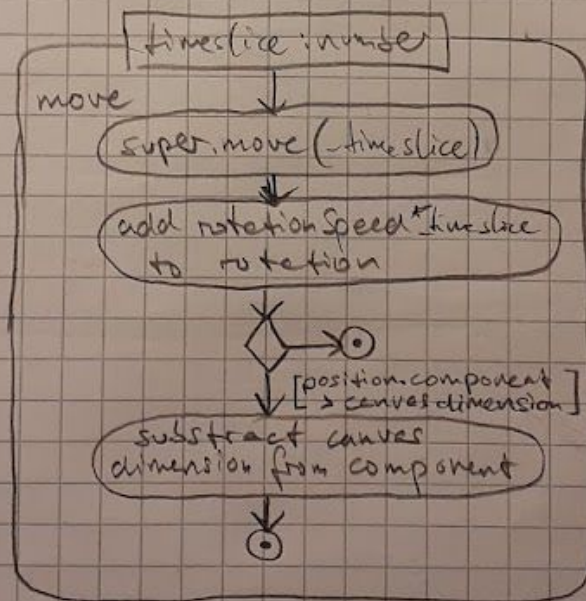 timeslice:number
move
super.move(_timeslice)
add rotationSpeed*_timeslice
to rotation
[position.component
> canvasdimension]
substract canvas
dimension from component